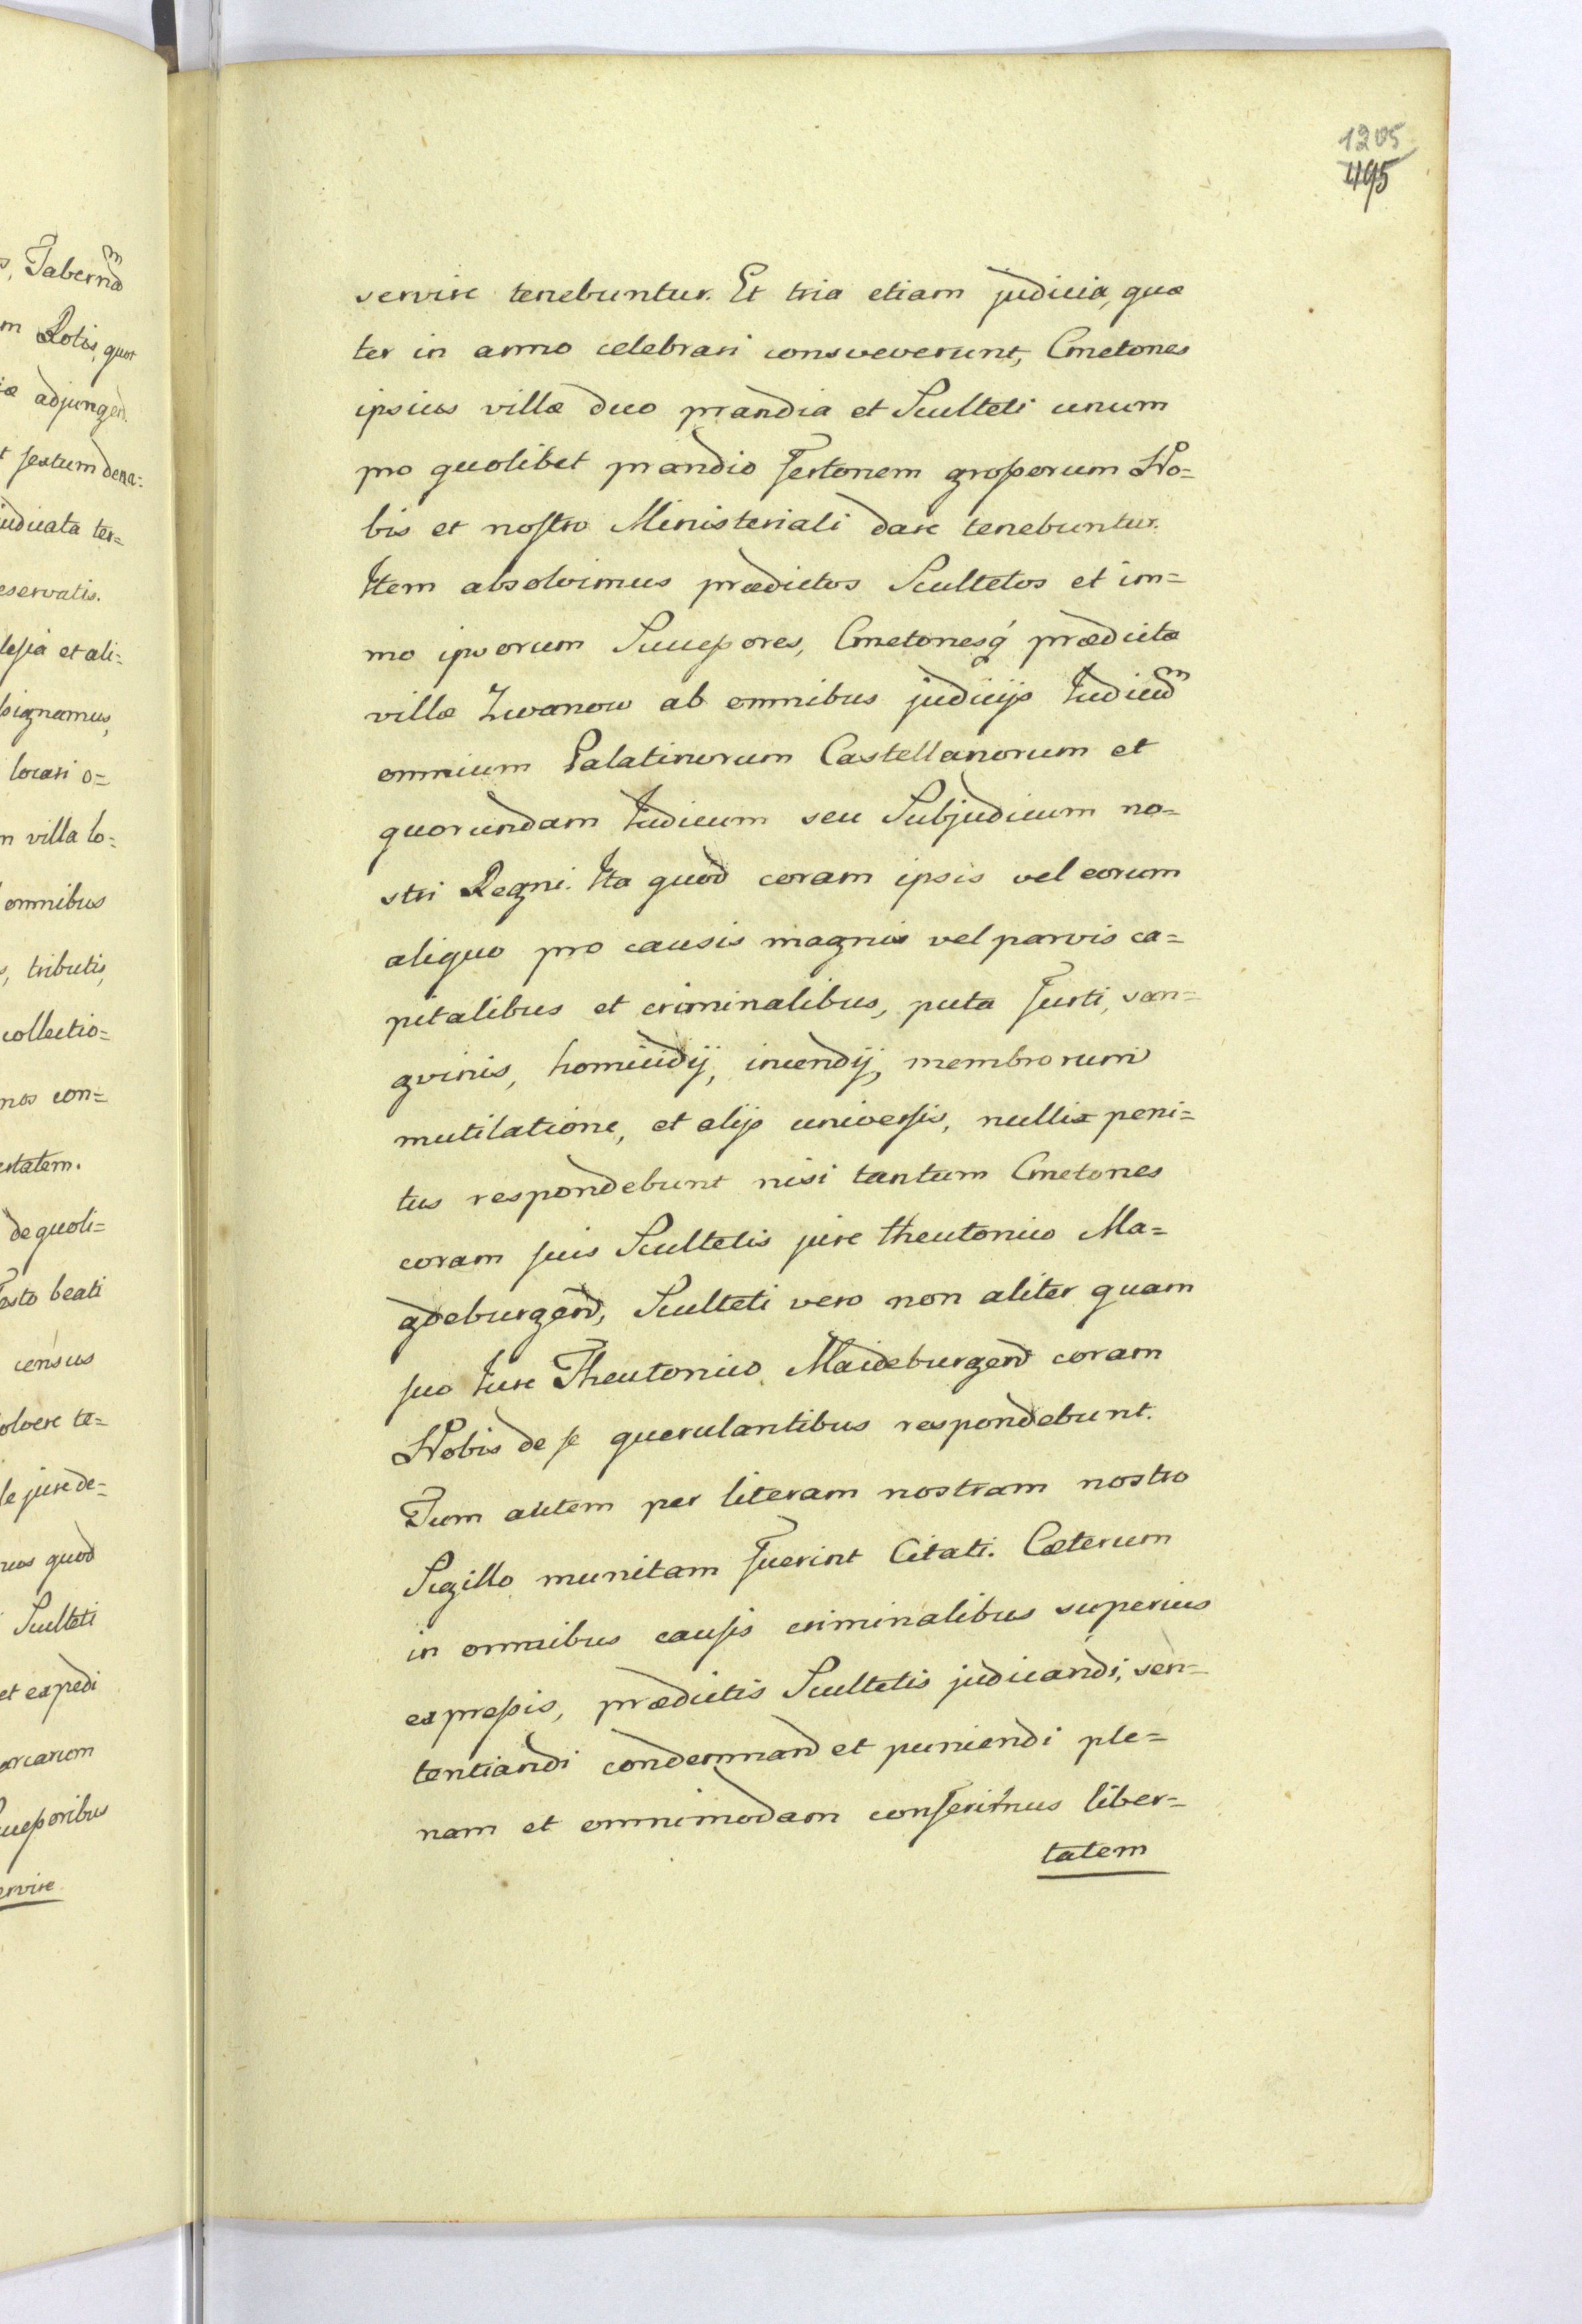 1205
495
servire tenebuntur. Et tria etiam judicia, quæ
ter in anno celebrari consveverunt, Cmetones
ipsius villæ duo prandia et Sculteti unum
pro quolibet prandio fertonem grossorum No=
bis et nostro Ministeriali dare tenebuntur.
Item absolvimus prædictos Scultetos et im=
mo ipsorum Successores, Cmetonesq́ prædictæ
villæ Zwanow ab omnibus judicijs Judicu͠m
omnium Palatinorum Castellanorum et
quorundam Judicum seu Subjudicum no=
stri Regni. Ita quod coram ipsis vel eorum
aliquo pro causis magnis vel parvis ca=
pitalibus et criminalibus, puta furti, san=
gvinis, homicidij, incendij, membrorum
mutilatione, et alijs universis, nullis peni=
tus respondebunt nisi tantum Cmetones
coram suis Scultetis jure theutonico Ma=
gdeburgen, Sculteti vero non aliter quam
suo Jure Theutonico Maideburgen coram
Nobis de se querulantibus respondebunt.
Dum autem per literam nostram nostro
Sigillo munitam fuerint Citati. Cæterum
in omnibus causis criminalibus superius
expressis, prædictis Scultetis judicandi, sen=
tentiandi condemnand et puniendi ple=
nam et omnimodam conferimus liber=
tatem
Tabernam
m Rotis, quor
iæ adjungen.
t sextum dena:
judicata ter=
eservatis.
lesia et ali:
signamus,
locari o=
m villa lo:
omnibus
s, tributis,
collectio=
nos con=
estatem.
de quoli=
festo beati
census
solvere te=
le jure de=
mus quod
Sculteti
et expedi
marcarum
Successoribus
servire